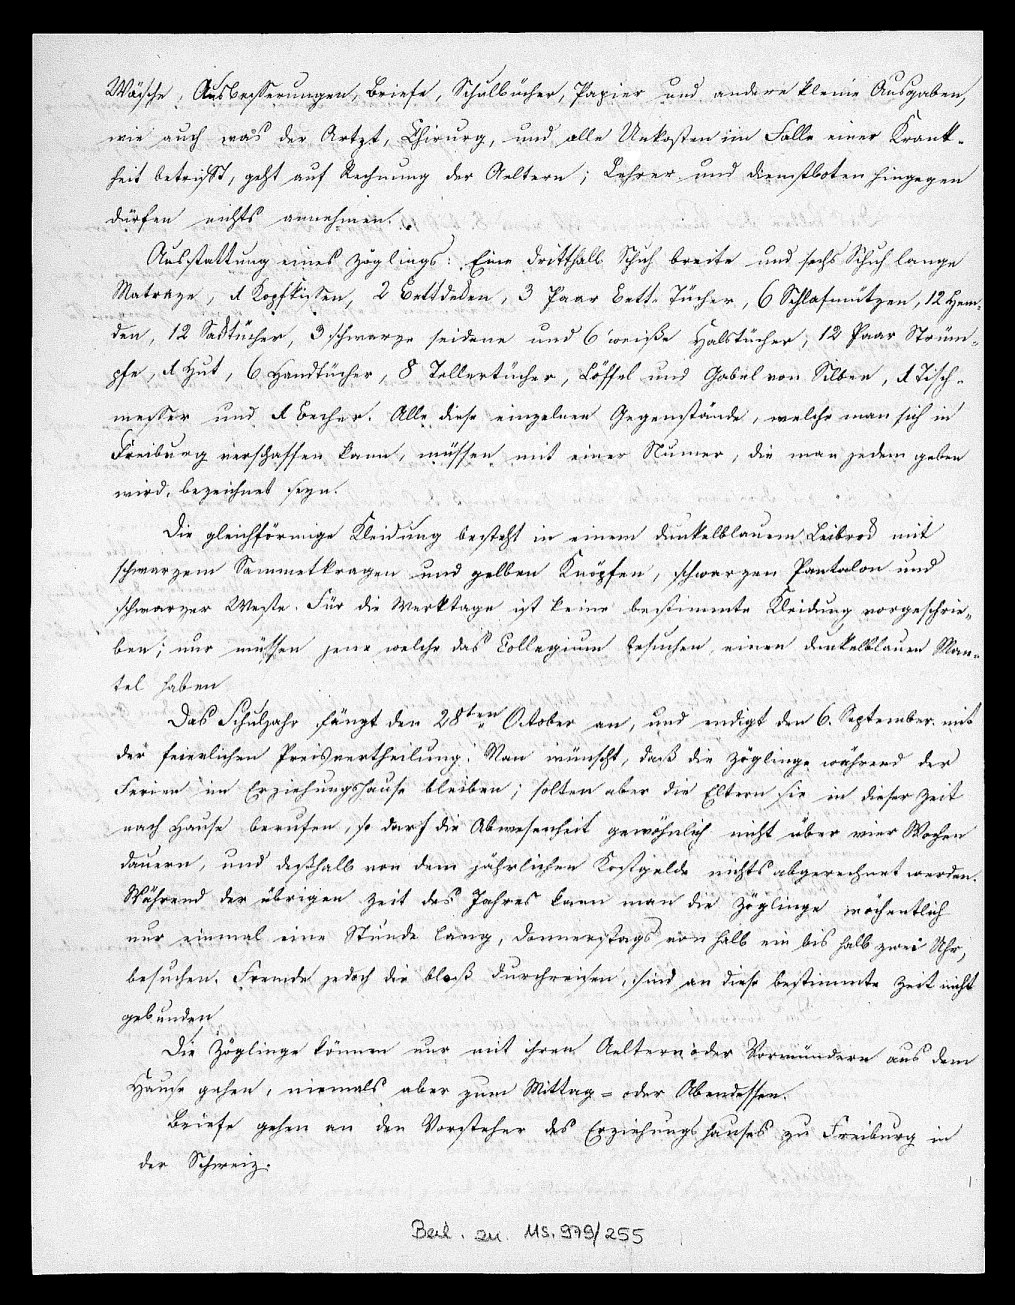 Wäsche, Ausbesserungen, Briefe, Schulbücher, Papier und andere kleine Ausgaben,
wie auch was der Artzt, Chirurg, und alle Unkosten im Falle einer Krank-
heit betrifft, geht auf Rechnung der Aeltern; Lehrer und Dienstboten hingegen
dürfen nichts annehmen.
Ausstattung eines Zöglings: Eine dritthalb Schuh breite und sechs Schuh lange
Matraze, 1 Kopfküssen, 2 Bettdeken, 3 Paar Bett-Tücher, 6 Schlafmützen, 12 Hem-
den, 12 Saktücher, 3 schwarze seidene und 6 weiße Halstücher, 12 Paar Strüm-
pfe, 1 Hut, 6 Handtücher, 8 Tellertücher, Löffel und Gabel von Silber, 1 Tisch-
messer und 1 Becher. Alle diese einzelnen Gegenstände, welche man sich in
Freiburg verschaffen kann, müssen mit einer Numer, die man jedem geben
wird, bezeichnet seyn.
Die gleichförmige Kleidung besteht in einem dunkelblauem Leibrok mit
schwarzem Sammetkragen und gelben Knöpfen, schwarzen Pantalon und
schwarzer Weste. Für die Werktage ist keine bestimmte Kleidung vorgeschrie-
ben; nur müssen jene welche das Collegium besuchen, einen dunkelblauen Man-
tel haben
Das Schuljahr fängt den 28ten October an, und endigt den 6. September mit
der feierlichen Preisvertheilung. Man wünscht, daß die Zöglinge während der
Ferien im Erziehungshause bleiben; solten aber die Eltern sie in dieser Zeit
nach Hause berufen, so darf die Abwesenheit gewöhnlich nicht über vier Wochen
dauern, und deßhalb von dem jährlichen Kostgelde nichts abgerechnet werden.
Während der übrigen Zeit des Jahres kann man die Zöglinge wöchentlich
nur einmal eine Stunde lang, Donnerstags von halb ein bis halb zwei Uhr,
besuchen. Fremde jedoch die bloß durchreisen, sind an diese bestimmte Zeit nicht
gebunden
Die Zöglinge können nur mit ihren Aeltern oder Vormündern aus dem
Hause gehen, niemals aber zum Mittag- oder Abendessen.
Briefe gehen an den Vorsteher des Erziehungshauses zu Freiburg in
der Schweiz.
Beil. zu Ms. 979/255